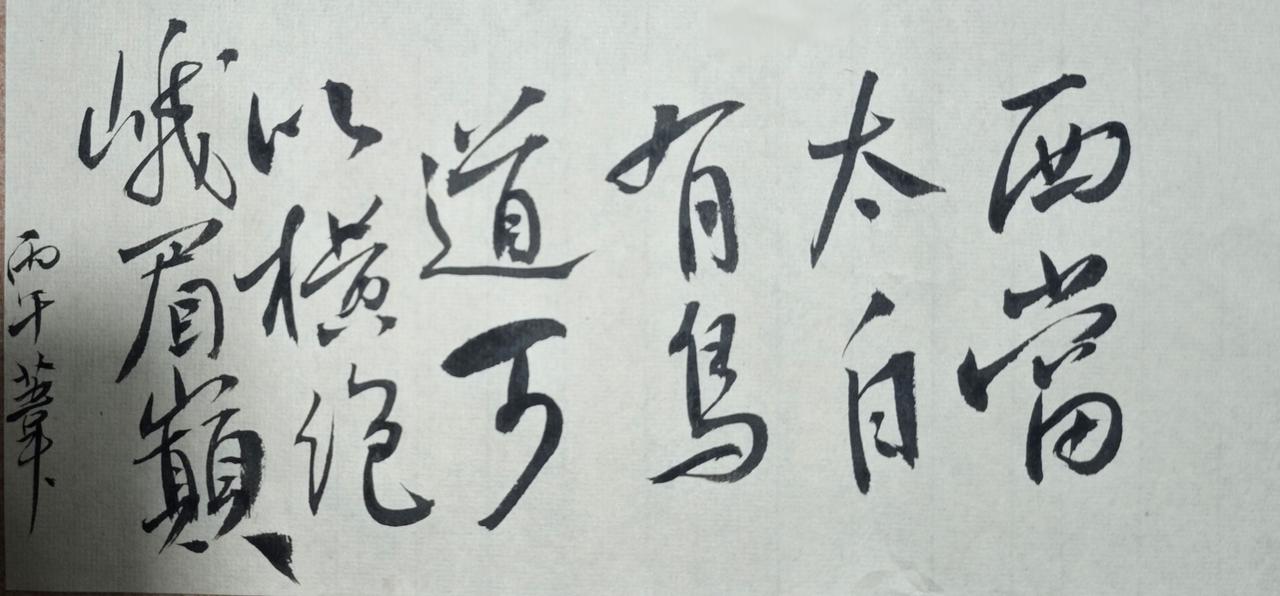 西當
太白
有鳥
道可
以橫絶
峨眉巔
丙午葦